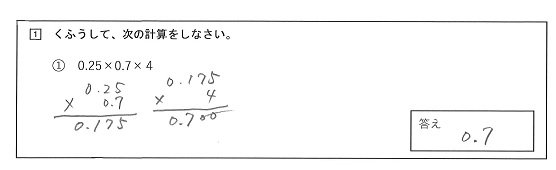 1 くふうして、次の計算をしなさい。
① 0.25×0.7×4
0.25
× 0.7
0.175
0.175
× 4
0.700
答え
0.7